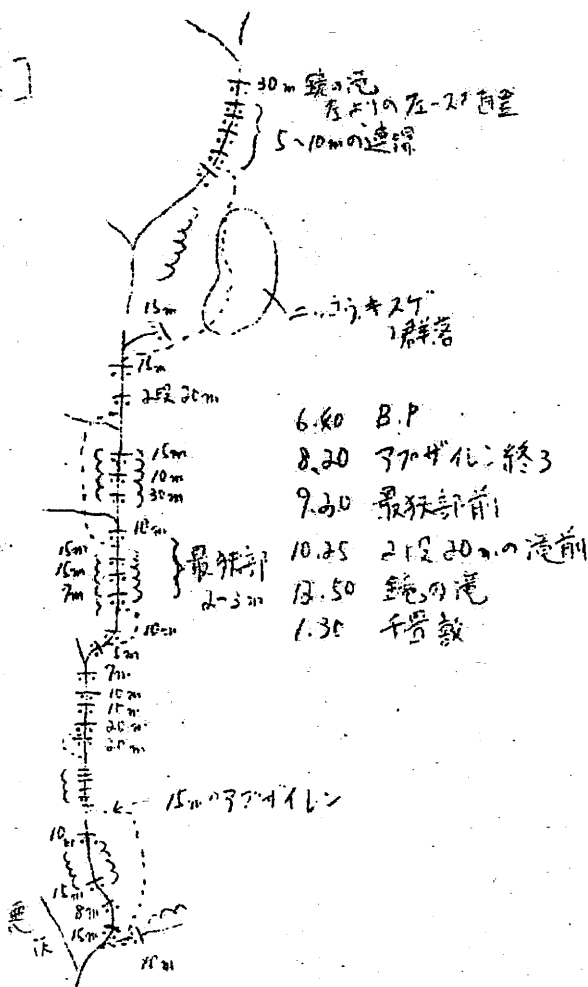 30m 鏡の滝
左よりのフェースを直登
5~10mの連瀑
ニッコウキスゲ
群落
15m
15m
2段20m
15m
10m
30m
10m
15m
15m
7m
最狭部
2~3m
10m
5m
7m
10m
15m
20m
20m
15mのアプザイレン
10m
15m
8m
15m
15m
悪沢
6.40 B.P
8.20 アプザイレン終了
9.20 最狭部前
10.25 2段20mの滝前
12.50 鏡の滝
1.30 千畳敷